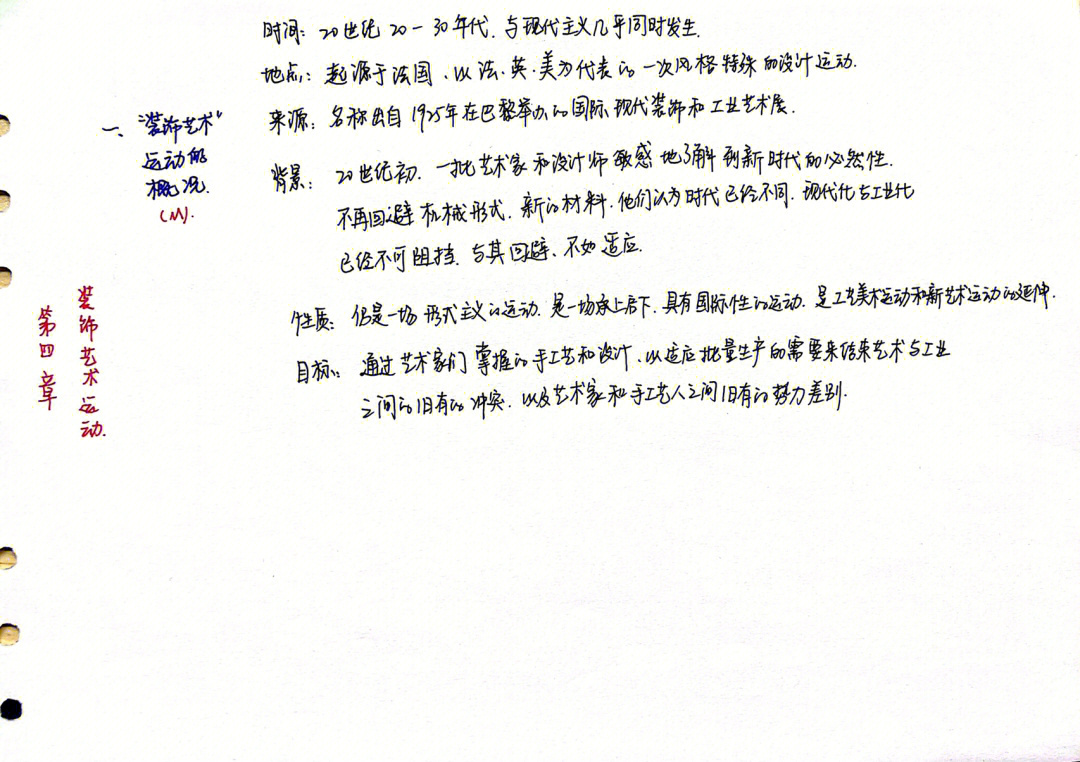 第四章
装饰艺术运动.
一、"装饰艺术"
运动的
概况.
(M).
时间: 20世纪20-30年代. 与现代主义几乎同时发生.
地点: 起源于法国、以法、英、美为代表的一次风格特殊的设计运动.
来源: 名称出自1925年在巴黎举办的国际现代装饰和工业艺术展.
背景: 20世纪初. 一批艺术家和设计师敏感地了解到新时代的必然性.
不再回避机械形式. 新的材料. 他们认为时代已经不同. 现代化与工业化
已经不可阻挡. 与其回避、不如适应.
性质: 仍是一场形式主义的运动. 是一场承上启下. 具有国际性的运动. 是工艺美术运动和新艺术运动的延伸.
目标: 通过艺术家们掌握的手工艺和设计、以适应批量生产的需要来结束艺术与工业
之间的旧有的冲突. 以及艺术家和手工艺人之间旧有的势力差别.